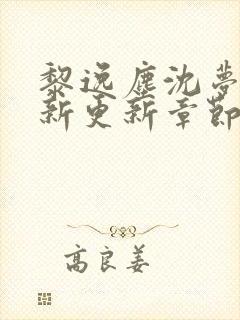 黎逸塵沈夢
新更新章節
高良姜